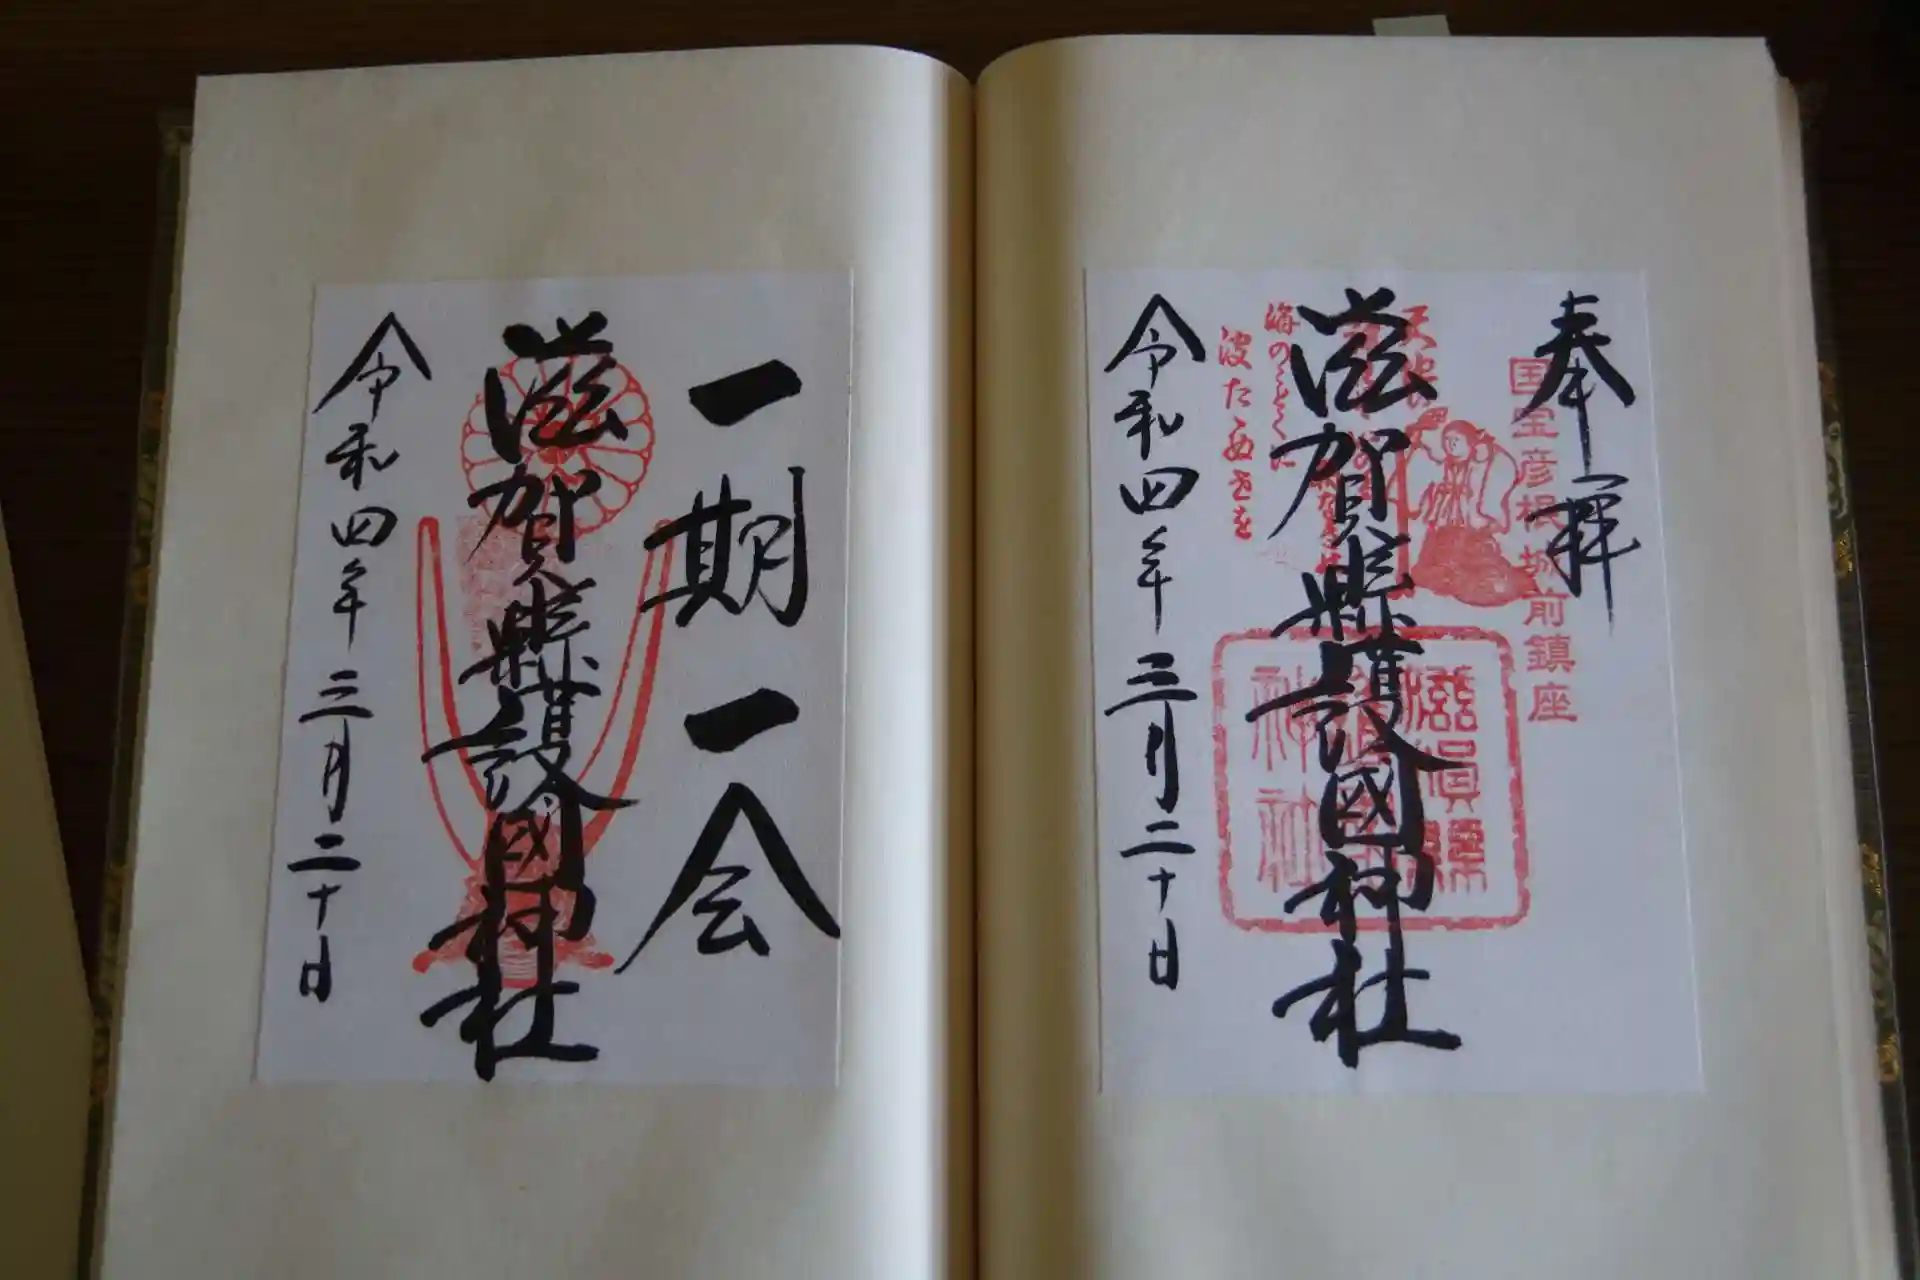 奉拝
国宝彦根城前鎮座
滋賀縣護國神社
滋賀縣
神社
海のことくに
波たゝぬ世を
令和四年三月二十日
一期一会
滋賀縣護國神社
令和四年三月二十日